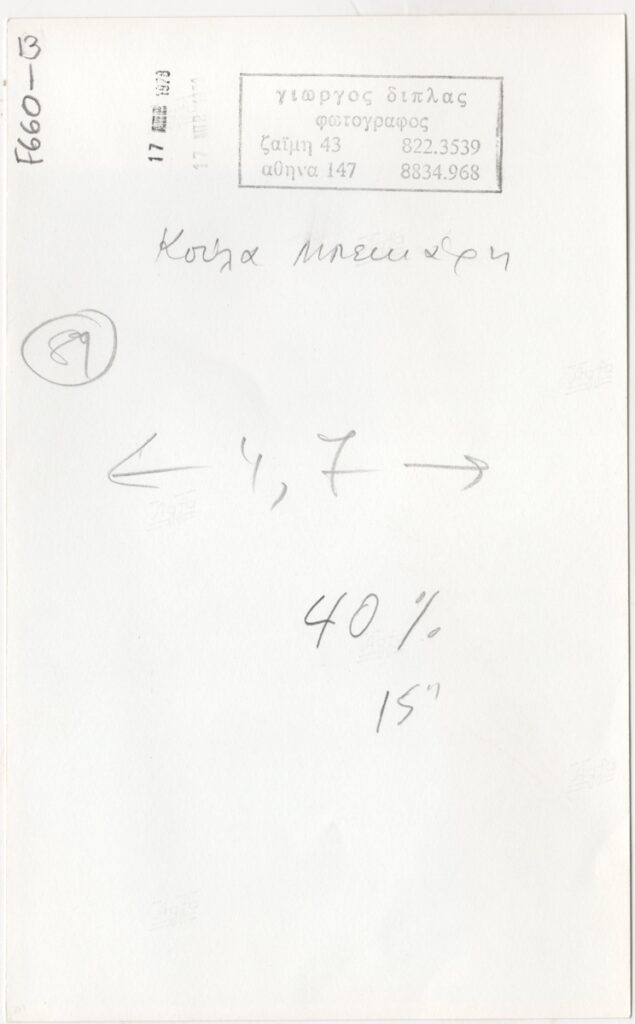 F660-B
17 ΑΠΡ 1979
γιωργος διπλας
φωτογραφος
ζαϊμη 43 822.3539
αθηνα 147 8834.968
Κούλα
89
← 4,7 →
40%
15"